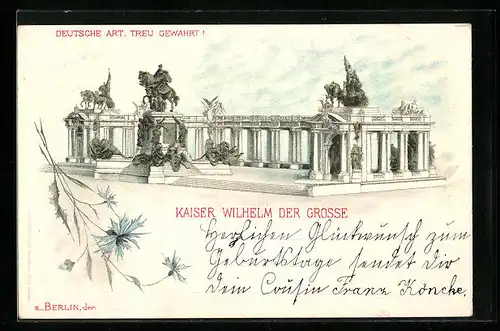 DEUTSCHE ART, TREU GEWAHRT!
KAISER WILHELM DER GROSSE
Herzlichen Glückwunsch zum
Geburtstage sendet Dir
dem Cousin Franz
BERLIN, den